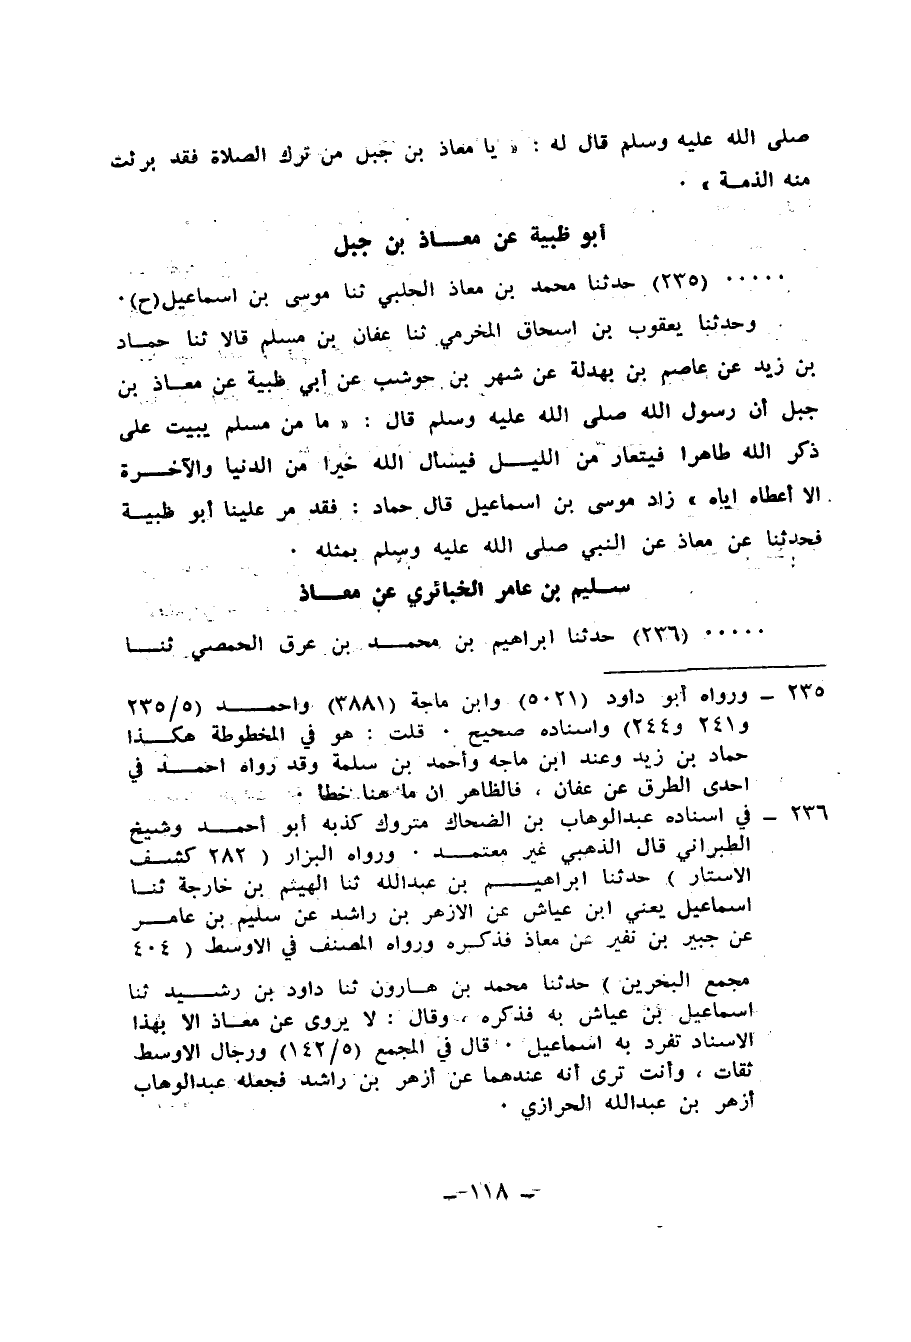 صلى الله عليه وسلم قال له : « يا معاذ بن جبل من ترك الصلاة فقد برئت
منه الذمة » ٠
أبو ظبية عن معاذ بن جبل
٠٠٠٠٠ (٢٣٥) حدثنا محمد بن معاذ الحلبي ثنا موسى بن اسماعيل(ح)٠
وحدثنا يعقوب بن اسحاق المخرمي ثنا عفان بن مسلم قالا ثنا حماد
بن زيد عن عاصم بن بهدلة عن شهر بن حوشب عن أبي ظبية عن معاذ بن
جبل أن رسول الله صلى الله عليه وسلم قال : « ما من مسلم يبيت على
ذكر الله طاهرا فيتعار من الليل فيسأل الله خيرا من الدنيا والآخرة
الا أعطاه اياه » زاد موسى بن اسماعيل قال حماد : فقد مر علينا أبو ظبية
فحدثنا عن معاذ عن النبي صلى الله عليه وسلم بمثله ٠
سليم بن عامر الخبائري عن معاذ
٠٠٠٠٠ (٢٣٦) حدثنا ابراهيم بن محمد بن عرق الحمصي ثنا
٢٣٥ ــ ورواه أبو داود (٥٠٢١) وابن ماجة (٣٨٨١) واحمد (٢٣٥/٥
و٢٤١ و٢٤٤) واسناده صحيح ٠ قلت : هو في المخطوطة هكذا
حماد بن زيد وعند ابن ماجه وأحمد بن سلمة وقد رواه احمد في
احدى الطرق عن عفان ، فالظاهر ان ما هنا خطأ ٠
٢٣٦ ــ في اسناده عبدالوهاب بن الضحاك متروك كذبه أبو أحمد وشيخ
الطبراني قال الذهبي غير معتمد ٠ ورواه البزار ( ٢٨٢ كشف
الاستار ) حدثنا ابراهيم بن عبدالله ثنا الهيثم بن خارجة ثنا
اسماعيل يعني ابن عياش عن الازهر بن راشد عن سليم بن عامر
عن جبير بن نفير عن معاذ فذكره ورواه المصنف في الاوسط ( ٤٠٤
مجمع البخرين ) حدثنا محمد بن هارون ثنا داود بن رشيد ثنا
اسماعيل بن عياش به فذكره ، وقال : لا يروى عن معاذ الا بهذا
الاسناد تفرد به اسماعيل ٠ قال في المجمع (١٤٢/٥) ورجال الاوسط
ثقات ، وأنت ترى أنه عندهما عن أزهر بن راشد فجعله عبدالوهاب
أزهر بن عبدالله الحرازي ٠
ــ ١١٨ ــ